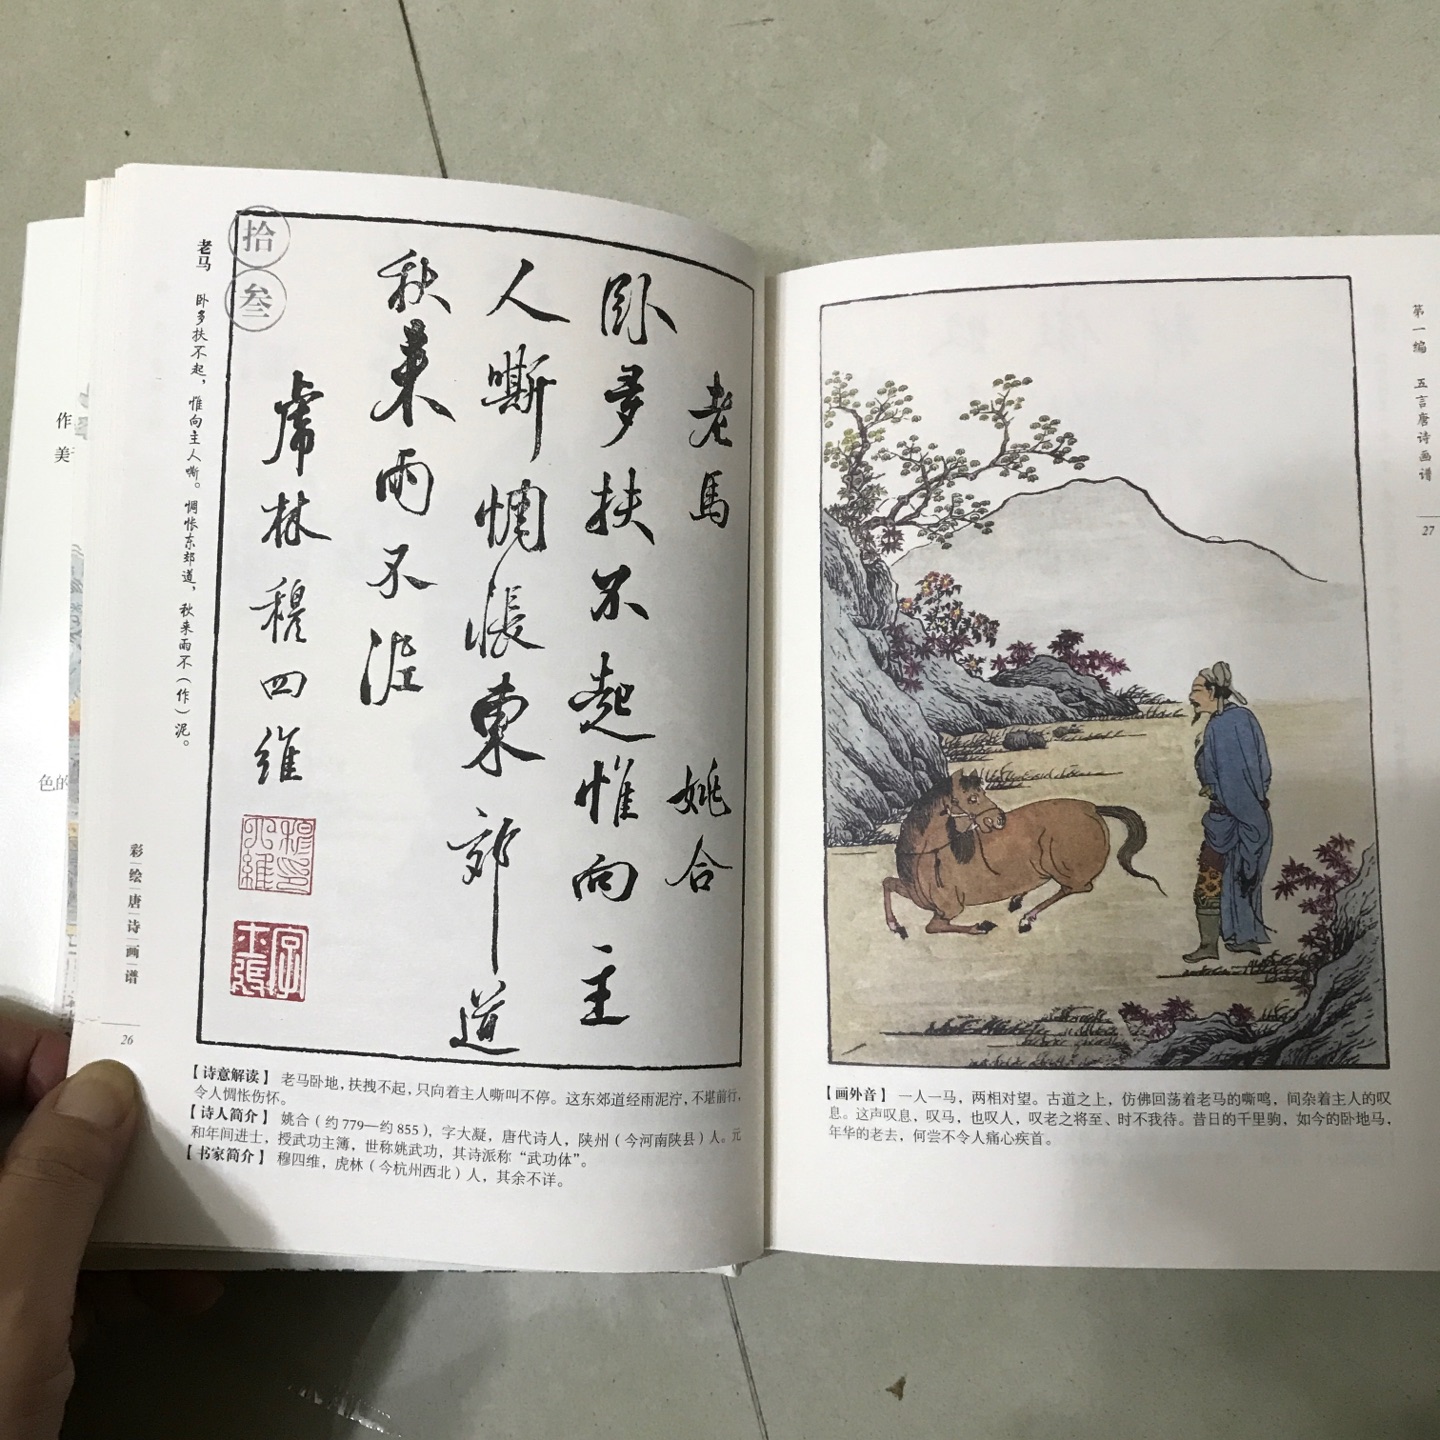 作
美
色的
拾
叁
老马 卧多扶不起，惟向主人嘶。惆怅东郊道，秋来雨不（作）泥。
老馬 姚合
卧多扶不起惟向主
人嘶惆悵東郊道
秋来雨不泥
虎林穆四維
彩绘唐诗画谱
26
【诗意解读】 老马卧地，扶拽不起，只向着主人嘶叫不停。这东郊道经雨泥泞，不堪前行，
令人惆怅伤怀。
【诗人简介】 姚合（约779—约855），字大凝，唐代诗人，陕州（今河南陕县）人。元
和年间进士，授武功主簿，世称姚武功，其诗派称“武功体”。
【书家简介】 穆四维，虎林（今杭州西北）人，其余不详。
第一编 五言唐诗画谱
27
【画外音】 一人一马，两相对望。古道之上，仿佛回荡着老马的嘶鸣，间杂着主人的叹
息。这声叹息，叹马，也叹人，叹老之将至、时不我待。昔日的千里驹，如今的卧地马，
年华的老去，何尝不令人痛心疾首。